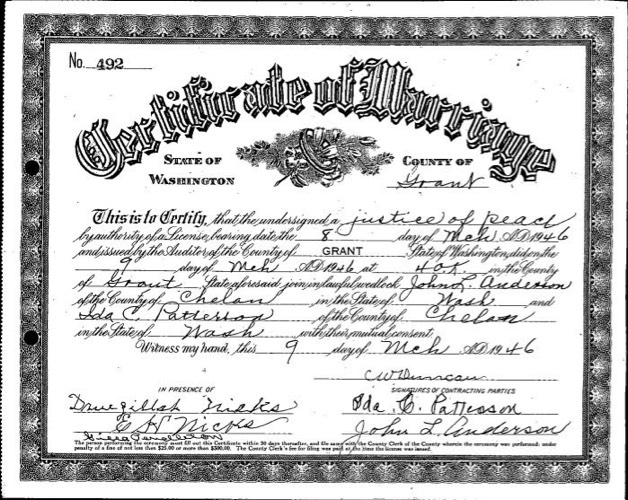 No. 492
Certificate of Marriage
STATE OF WASHINGTON
COUNTY OF Grant
This is to Certify, that the undersigned a justice of peace
by authority of a License, bearing date, the 8 day of Mch A.D. 1946
and issued by the Auditor of the County of GRANT State of Washington, did on the
9 day of Mch A.D. 1946 at in the County
of Grant State aforesaid, join in lawful wedlock John L. Anderson
of the County of Chelan in the State of Wash and
Ida C. Patterson of the County of Chelan
in the State of Wash with their mutual consent.
Witness my hand, this 9 day of Mch A.D. 1946
C W Duncan
IN PRESENCE OF
SIGNATURES OF CONTRACTING PARTIES
Ida C. Patterson
John L Anderson
The person performing the ceremony must fill out this Certificate within 30 days thereafter, and file same with the County Clerk of the County wherein the ceremony was performed; under
penalty of a fine of not less than $25.00 or more than $300.00. The County Clerk's fee for filing was paid at the time the license was issued.